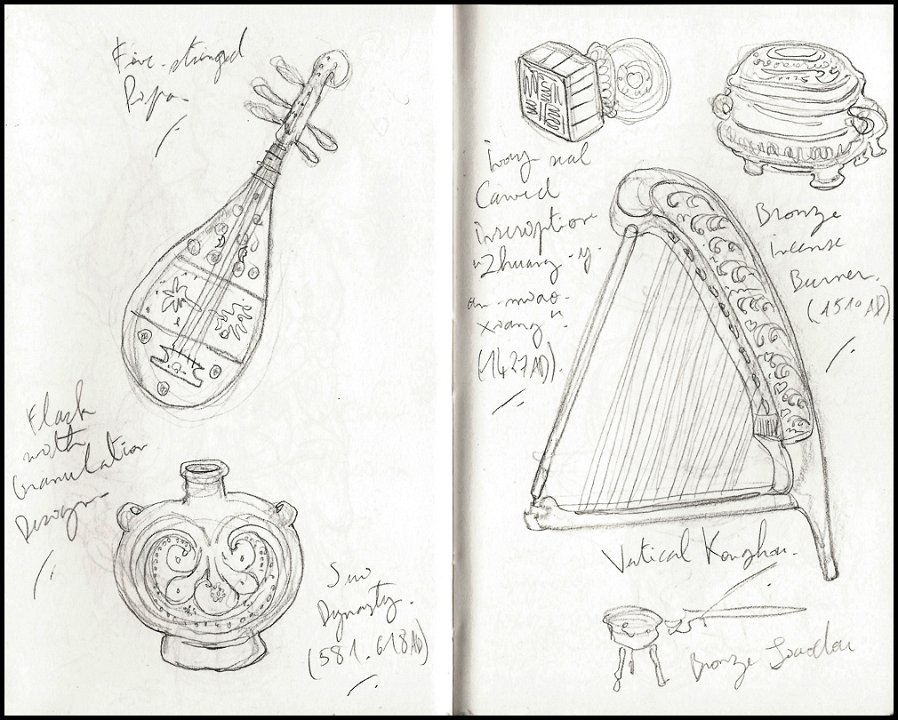 Five-stringed
Pipa
Flask
with
Granulation
Design
Sui
Dynasty.
(581-618AD)
Ivory seal
Carved
inscription
"Zhuang-y-
an-miao-
xiang".
(1427AD).
Bronze
incense
Burner.
(1510AD)
Vertical Konghou.
Bronze